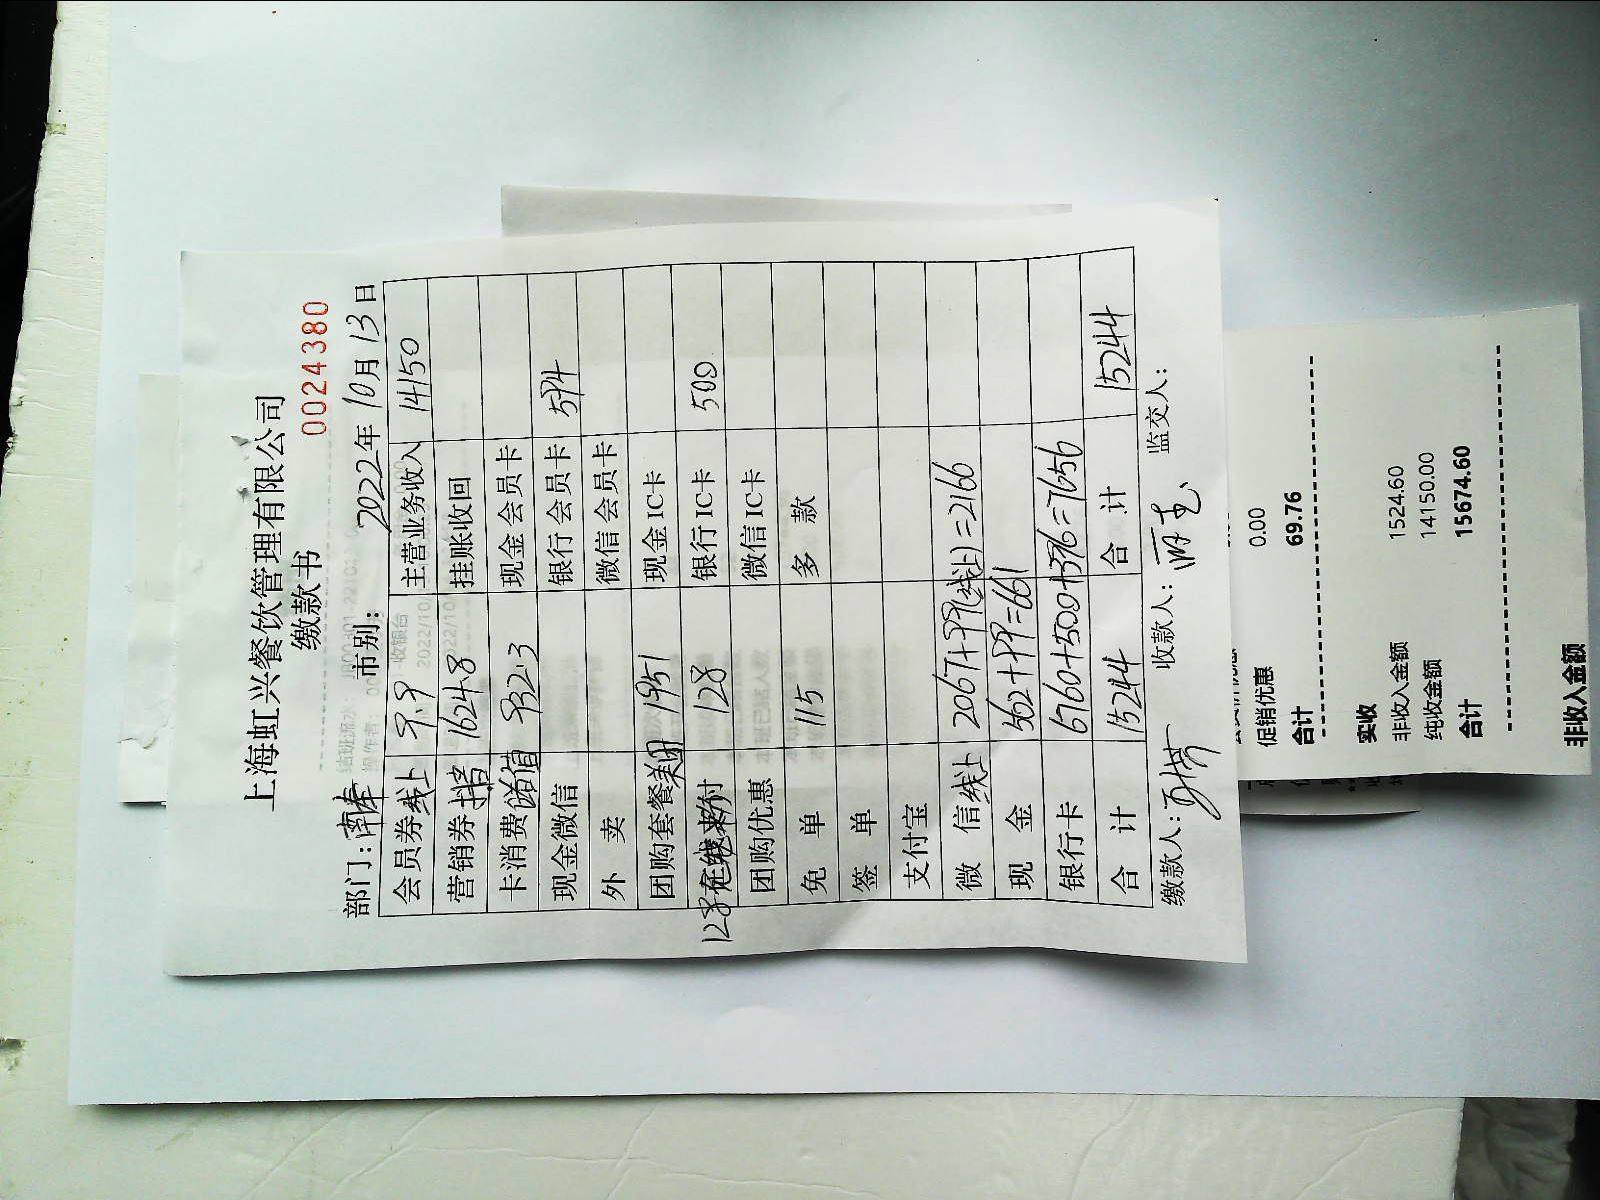 上海虹兴餐饮管理有限公司
缴款书
0024380
部门: 市别: 2022年 10月 13日
会员券线上 99 主营业务收入 14150
营销券抖音 1624.8 挂账收回
卡消费储值 932.3 现金会员卡
现金微信 银行会员卡 594
外 卖 微信会员卡
团购套餐美团 1951 现金IC卡
128 128 银行IC卡 500
团购优惠 微信IC卡
免 单 115 多 款
签 单
支付宝
微 信线上 2067+99(线上)=2166
现 金 562+99=661
银行卡 6760+500+396=7656
合 计 15244 合 计 15244
缴款人: 收款人: 监交人:
促销优惠 0.00
合计 69.76
实收
非收入金额 1524.60
纯收金额 14150.00
合计 15674.60
非收入金额